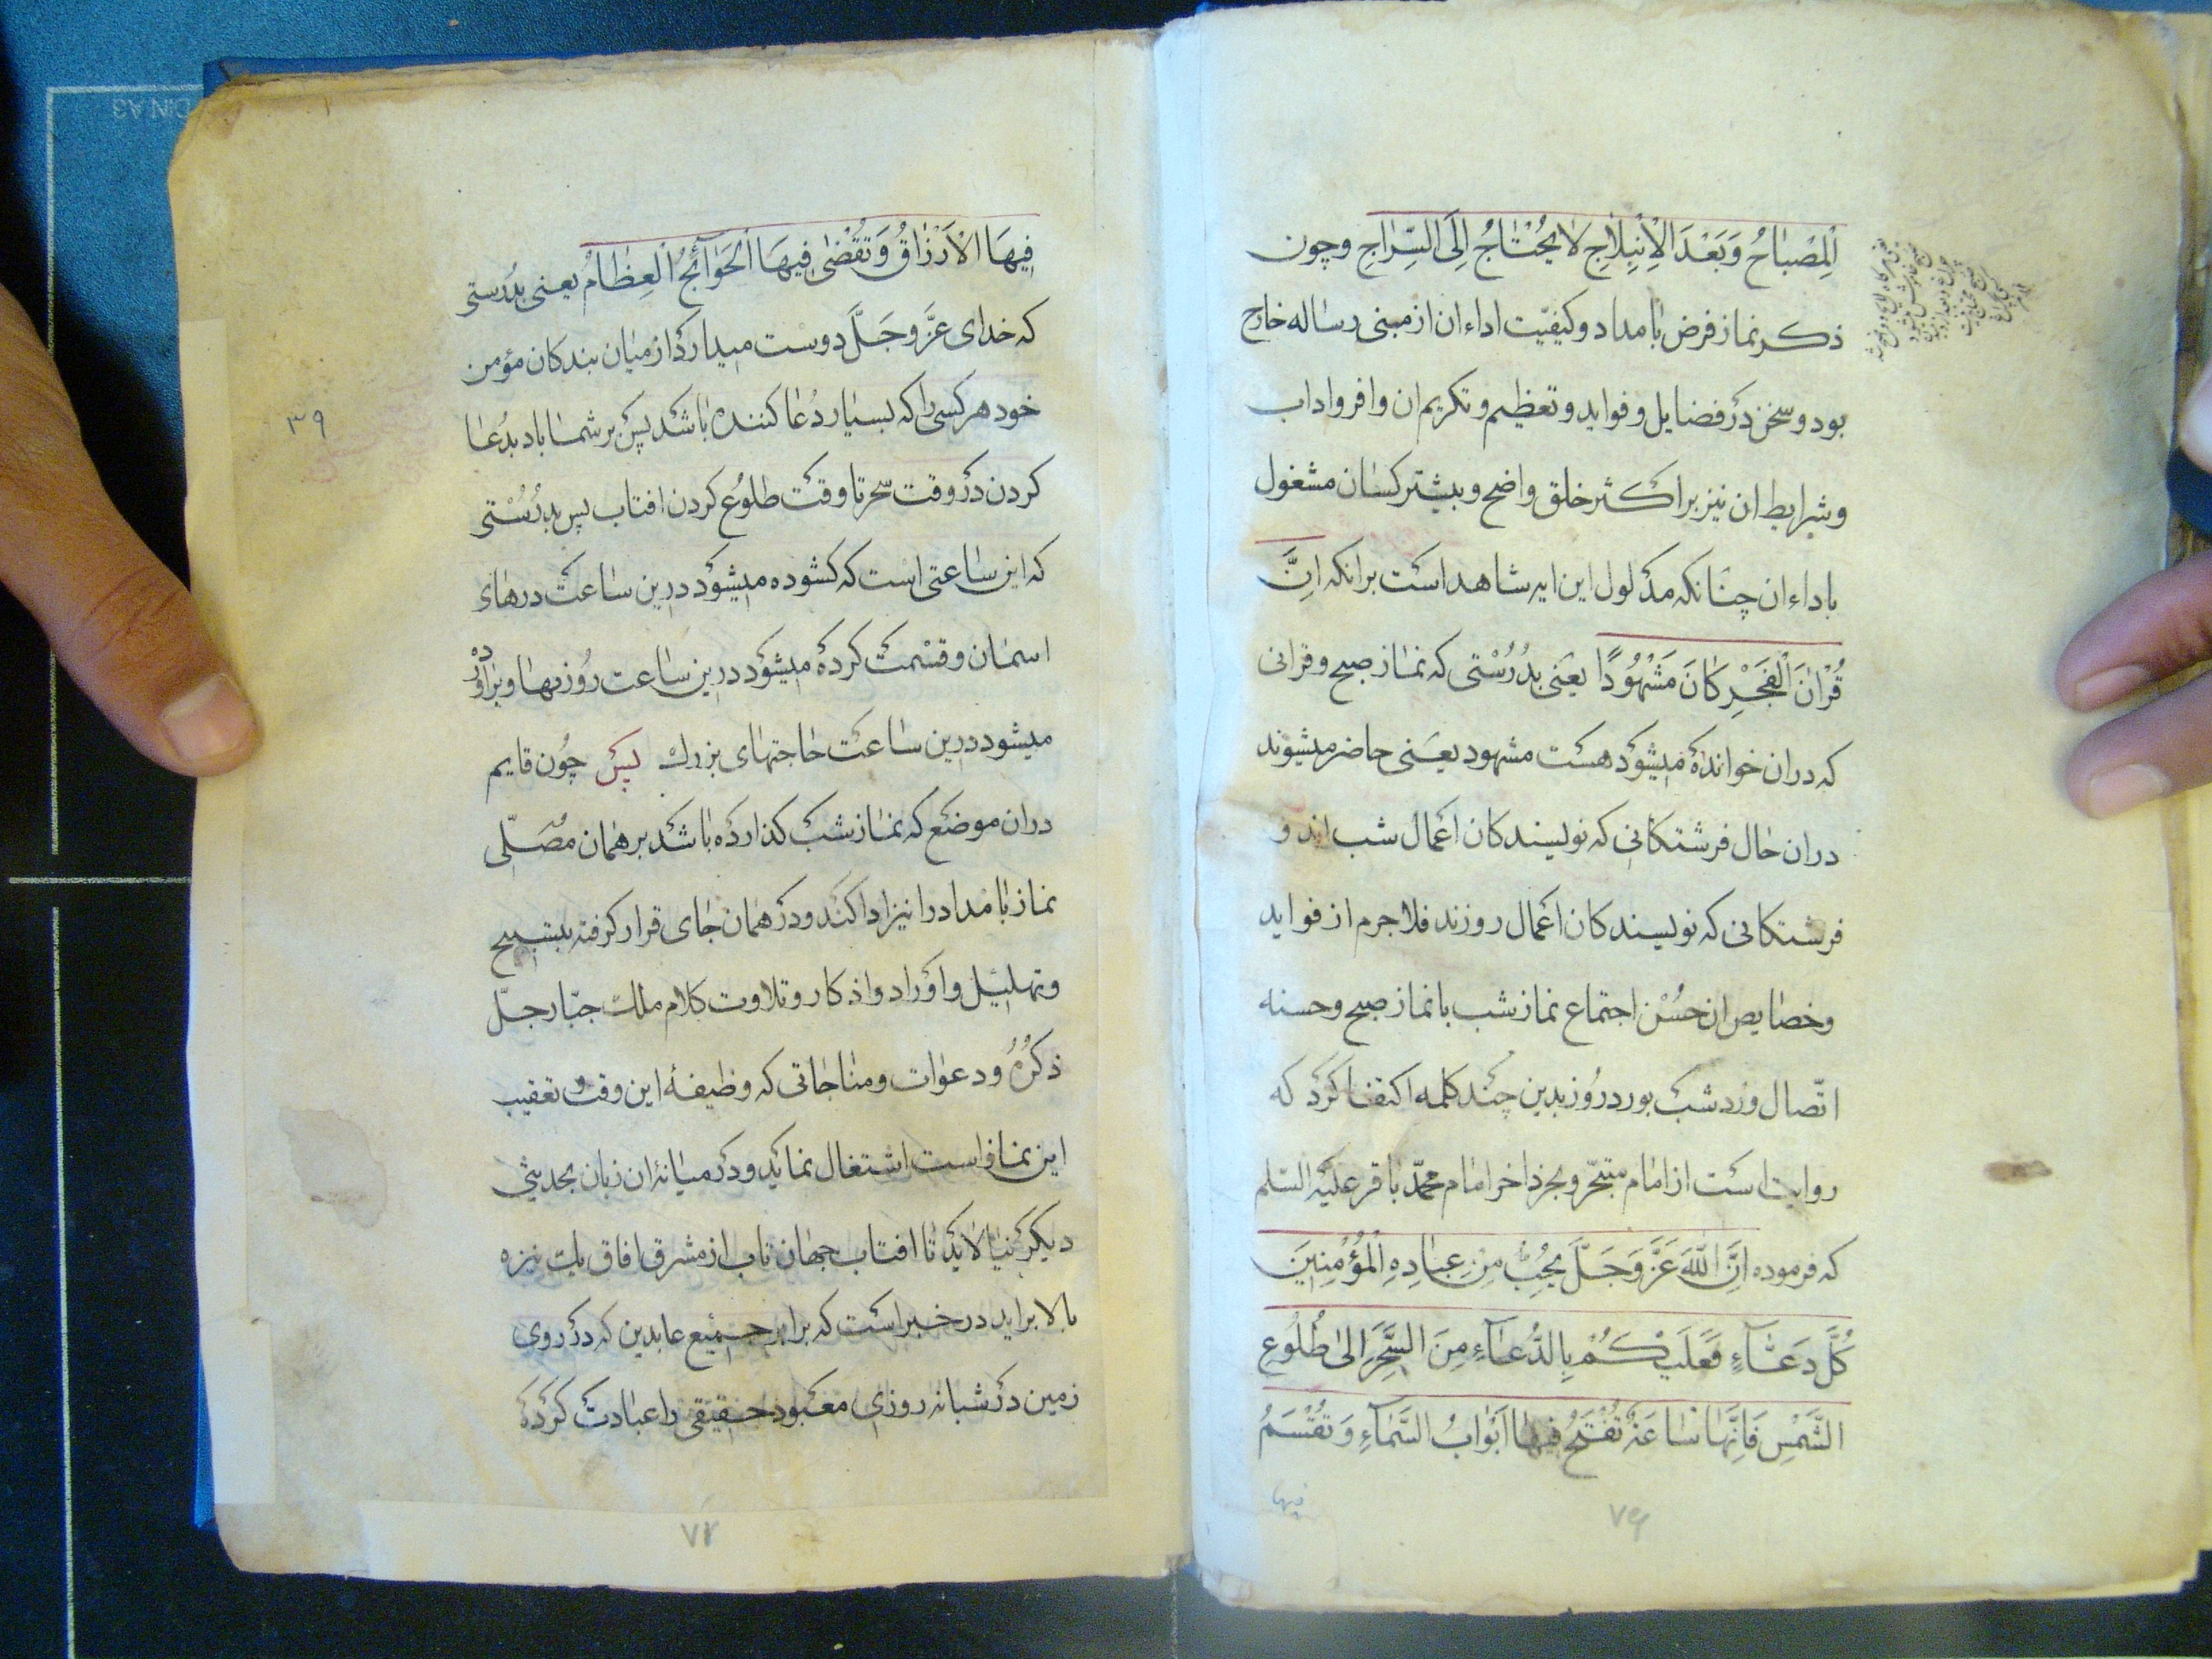 الْمِصْبَاحُ وَبَعْدَ الْاِنْبِلَاجِ لَا يُحْتَاجُ اِلَى السِّرَاجِ وچون
ذكر نماز فرض بامداد و كيفيّت اداء ان از مبنى رساله خارج
بود و سخن در فضايل و فوايد و تعظيم و تكريم ان وافر و اداب
و شرايط ان نيز بر اكثر خلق واضح و بيشتر كسان مشغول
باداء ان چنانكه مدلول اين ايه شاهد است برانكه اِنَّ
قُرْاٰنَ الْفَجْرِ كَانَ مَشْهُودًا يعنى بدُرُسْتى كه نماز صبح و قرانى
كه دران خوانده ميشود هست مشهود يعنى حاضر ميشوند
دران حال فرشتكانى كه نويسندكان اعمال شب اند و
فرشتكانى كه نويسندكان اعمال روزند فلاجرم از فوايد
و خصايص ان حُسْن اجتماع نماز شب با نماز صبح و حسنه
اتّصال ورد شب بورد رُوز بدين چند كلمه اكتفا كرد كه
روايت است از امام متبحّر و بحر زاخر امام محمّد باقر عليه السّلم
كه فرموده اِنَّ اللّٰهَ عَزَّ وَجَلَّ يُحِبُّ مِنْ عِبَادِهِ الْمُؤْمِنِينَ
كُلَّ دَعَّآءٍ فَعَلَيْكُمْ بِالدُّعَآءِ مِنَ السَّحَرِ اِلىٰ طُلُوعِ
الشَّمْسِ فَاِنَّهَا سَاعَةٌ تُفْتَحُ فِيهَا اَبْوَابُ السَّمَآءِ وَتُقْسَمُ
فيها
٧٦
فِيهَا الْاَرْزَاقُ وَتُقْضٰى فِيهَا الْحَوَآئِجُ الْعِظَامُ يعنى بدُرستى
كه خداى عزَّ وجَلَّ دوست ميدارد از ميان بندكان مؤمن
خود هر كسى را كه بسيار دُعا كننده باشد پس بر شما باد بدُعا
كردن در وقت سحر تا وقت طلوُع كردن افتاب پس بدُرُسْتى
كه اين ساعتى است كه كشوده ميشود درين ساعت درهاى
اسمان و قسْمت كرده ميشود درين ساعت رُوزيها و براورده
ميشود درين ساعت حاجتهاى بزرك پس چُون قايم
دران موضع كه نماز شب كذارده باشد بر همان مُصَلّى
نماز بامداد را نيز ادا كند و در همان جاى قرار كرفته بتسبيح
و تهليل و اوراد و اذكار و تلاوت كلام ملك جبّار جلّ
ذكرُهُ و دعوات و مناجاتى كه وظيفهٔ اين وقت و تعقيب
اين نماز است اشتغال نمايد و در ميانهٔ ان زبان بحديثى
ديكر نيالايد تا افتاب جهان تاب از مشرق افاق يك نيزه
بالا برايد در خبر است كه برابر جميع عابدين كه در روى
زمين در شبانه روزى معبود حقيقى را عبادت كرده
٣٩